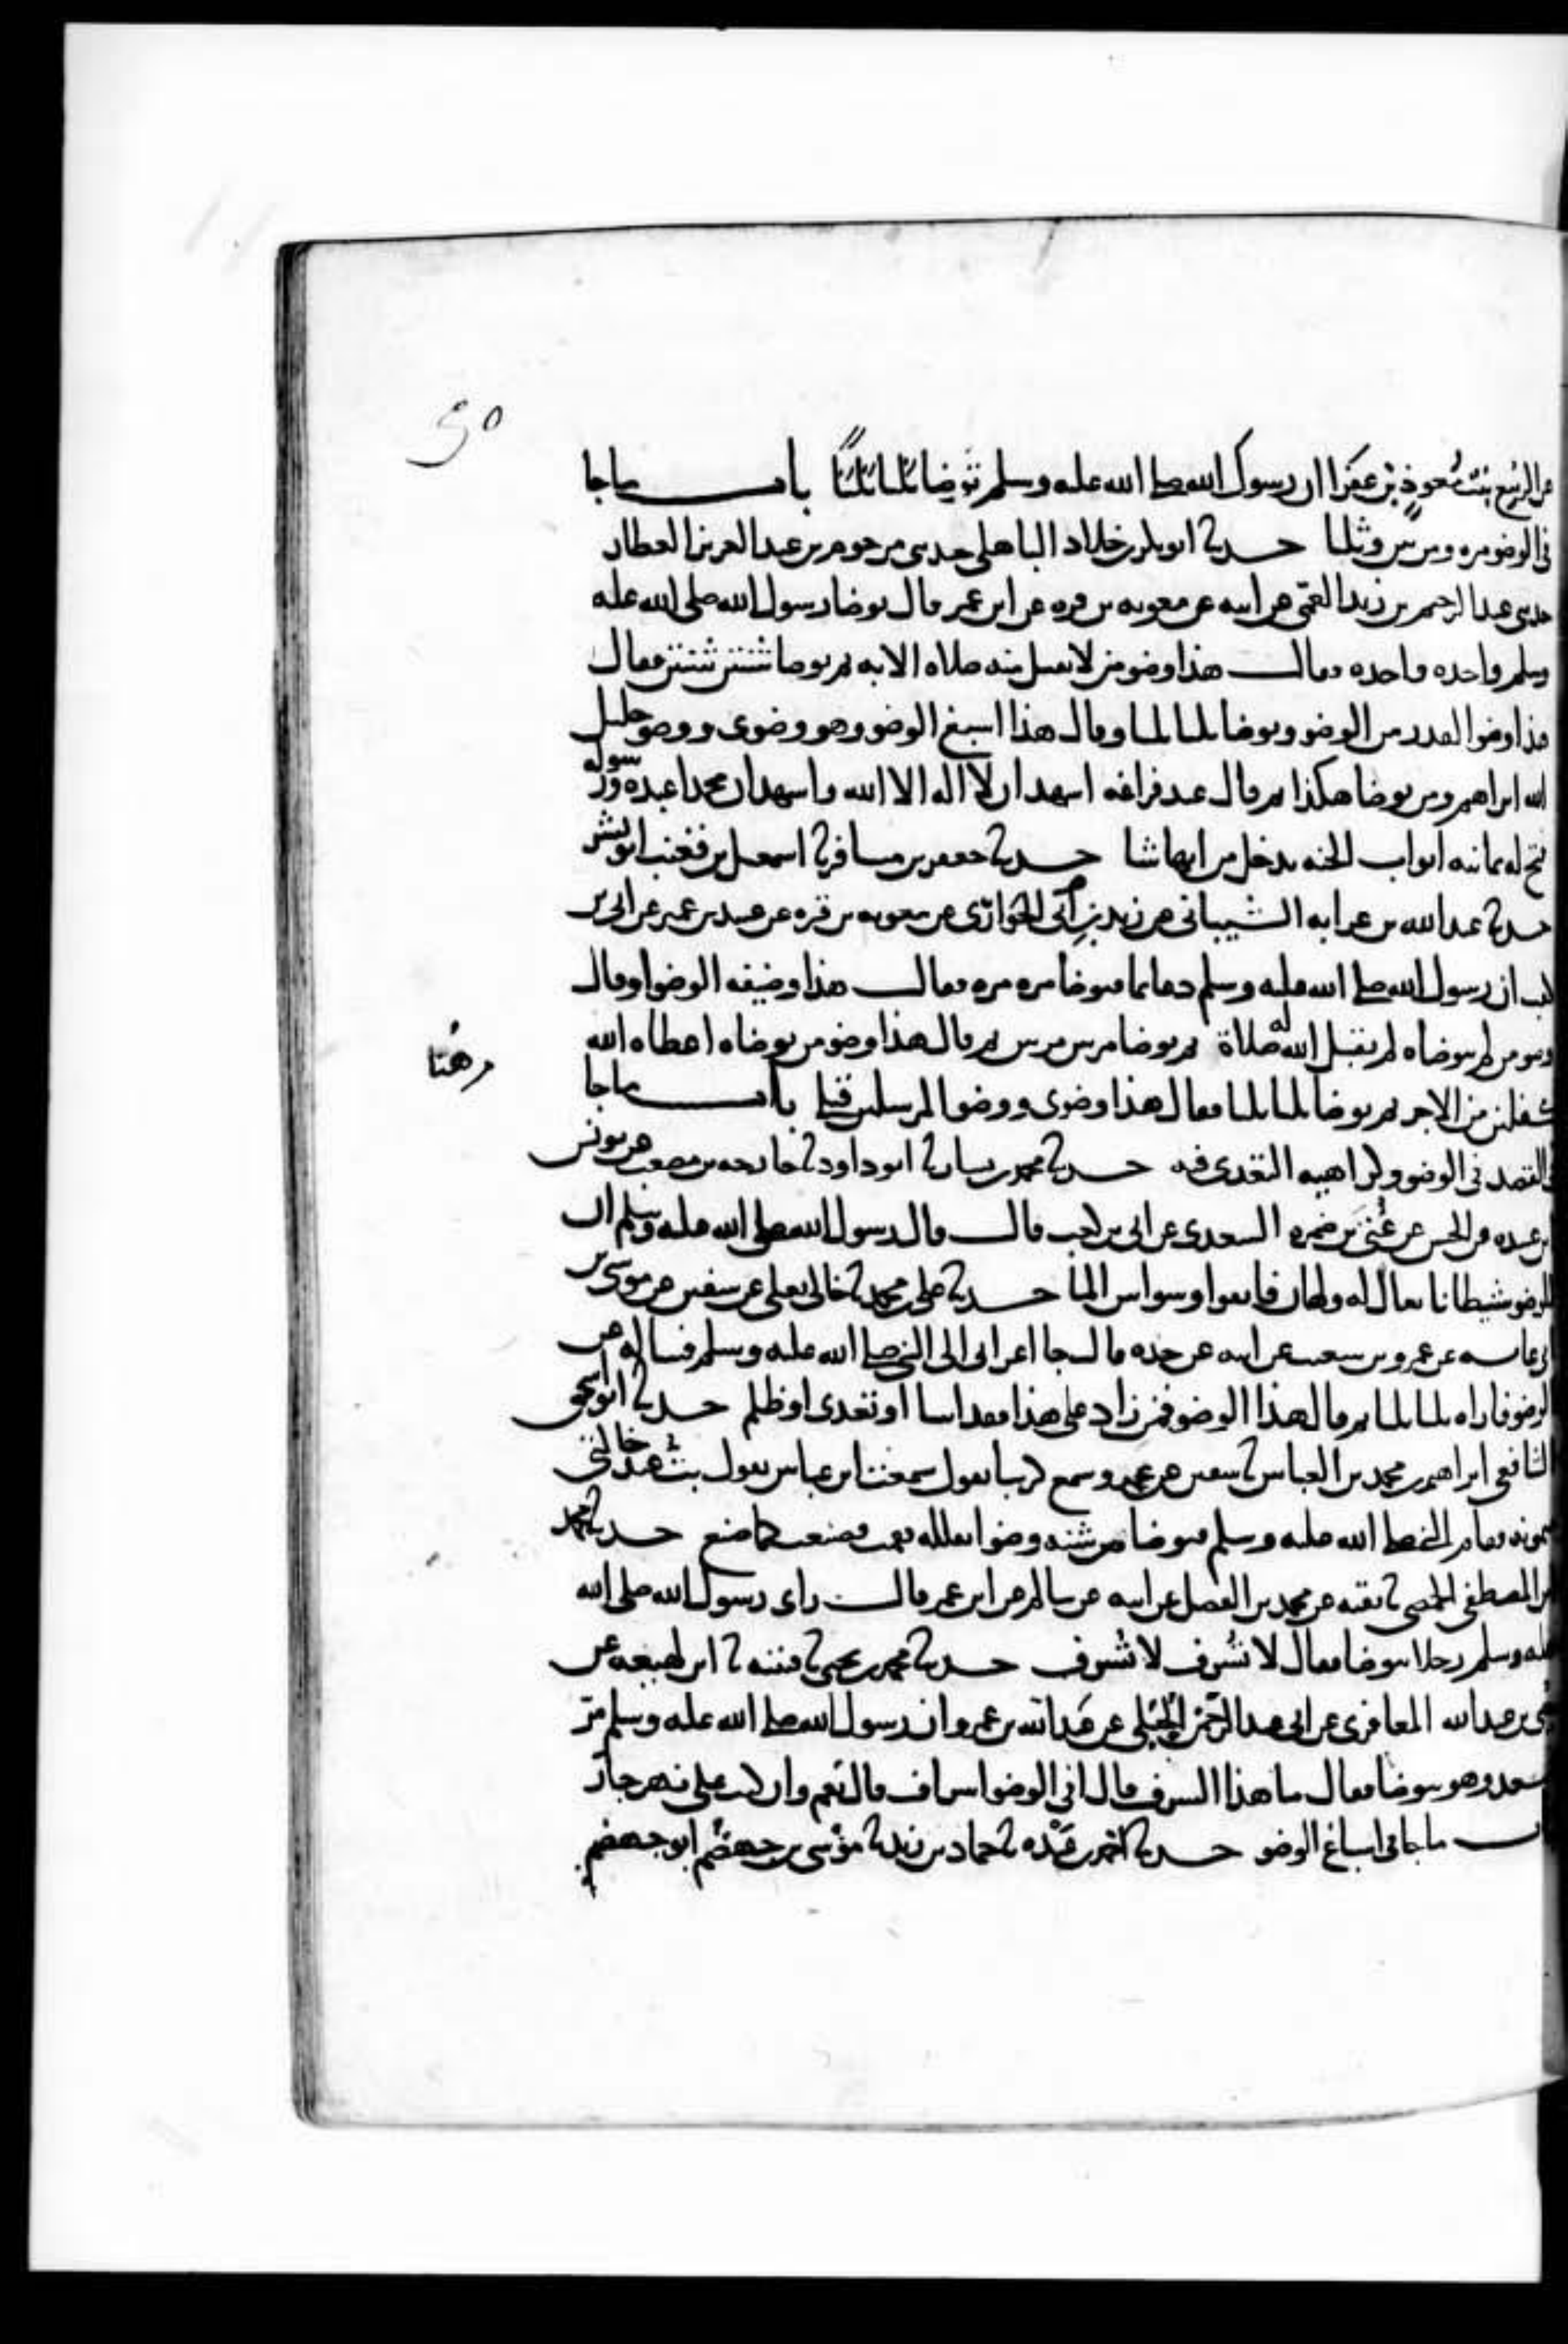 عن الربيع بنت معوذ بن عفرا ان رسول الله صلى الله عليه وسلم توضا ثلثا ثلثا باب ما جا
في الوضو مره ومرتين وثلثا حدثنا ابو بكر بن خلاد الباهلي حدثني مرحوم بن عبد العزيز العطار
حدثني عبد الرحيم بن زيد العمي عن ابيه عن معويه بن قره عن ابن عمر قال توضا رسول الله صلى الله عليه
وسلم واحده واحده فقال هذا وضو من لا يقبل منه صلاه الا به ثم توضا ثنتين ثنتين فقال
هذا وضوا القدر من الوضو وتوضا ثلثا ثلثا وقال هذا اسبغ الوضو وهو وضوي ووضو خليل
الله ابراهيم ومن توضا هكذا ثم قال عند فراغه اشهد ان لا اله الا الله واشهد ان محمدا عبده ورسوله
فتح له ثمانيه ابواب الجنه يدخل من ايها شا حدثنا جعفر بن مسافر نا اسمعيل بن قعنب ابو بشر
حدثنا عبد الله بن عراده الشيباني عن زيد بن ابي الحواري عن معويه بن قره عن عبيد بن عمير عن ابي بن
كعب ان رسول الله صلى الله عليه وسلم دعا بما فتوضا مره مره فقال هذا وضيفه الوضو او قال
وضو من لم يتوضاه لم يقبل الله له صلاة ثم توضا مرتين مرتين ثم قال هذا وضو من توضاه اعطاه الله
من هنا
كفلين من الاجر ثم توضا ثلثا ثلثا فقال هذا وضوي ووضو المرسلين قبلي باب ما جا
في القصد في الوضو وكراهيه التعدي فيه حدثنا محمد بن بشار نا ابو داود نا خارجه بن مصعب عن يونس
بن عبيد عن الحسن عن عتي بن ضمره السعدي عن ابي بن كعب قال قال رسول الله صلى الله عليه وسلم ان
للوضو شيطانا يقال له ولهان فاتقوا وسواس الما حدثنا علي بن محمد نا خالي يعلى عن سفين عن موسى بن
ابي عايشه عن عمرو بن شعيب عن ابيه عن جده قال جا اعرابي الى النبي صلى الله عليه وسلم فساله عن
الوضو فاراه ثلثا ثلثا ثم قال هذا الوضو فمن زاد على هذا فقد اسا او تعدى او ظلم حدثنا ابو اسحق
الشافعي ابراهيم بن محمد بن العباس نا سفين عن عمرو سمع كريبا يقول سمعت ابن عباس يقول بت عند خالتي
ميمونه فقام النبي صلى الله عليه وسلم فتوضا من شنه وضوا يقلله فقمت فصنعت كما صنع حدثنا محمد
بن المصطفى الحمصي نا بقيه عن محمد بن الفضل عن ابيه عن سالم عن ابن عمر قال راى رسول الله صلى الله
عليه وسلم رجلا يتوضا فقال لا تسرف لا تسرف حدثنا محمد بن يحيى نا قتيبه نا ابن لهيعه عن
حيي بن عبد الله المعافري عن ابي عبد الرحمن الحبلي عن عبد الله بن عمرو ان رسول الله صلى الله عليه وسلم مر
بسعد وهو يتوضا فقال ما هذا السرف قال افي الوضو اسراف قال نعم وان كنت على نهر جار
باب ما جا في اسباغ الوضو حدثنا احمد بن عبده نا حماد بن زيد نا موسى بن جهضم ابو جهضم